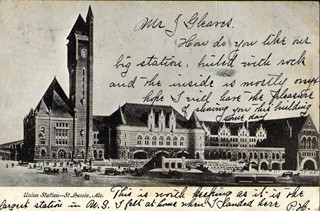 Mr J Gleaves.
How do you like our
big station. builed with rock
and the inside is mostly onyx
hope I will have the pleasure
showing you this building
some day.
Union Station—St. Louis, Mo.
This is worth keeping as it is the
largest station in M.S. I felt at home when I landed here P.G.